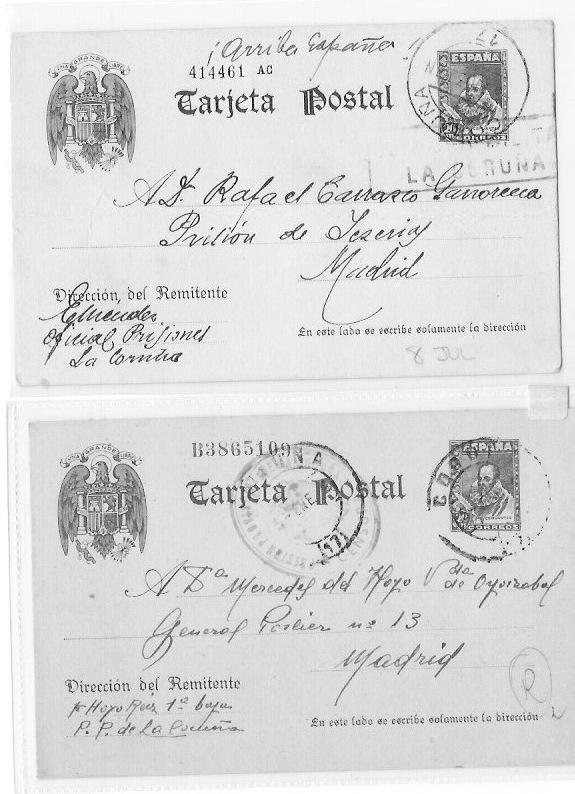 UNA GRANDE LIBRE
¡Arriba España!
414461 AC
Tarjeta Postal
ESPAÑA
CORREOS
LA CORUÑA
A D. Rafael Carrasco
Prisión de Yeserias
Madrid
Dirección del Remitente
Oficial Prisiones
La Coruña
En este lado se escribe solamente la dirección
8 JUL
UNA GRANDE LIBRE
B3865109
Tarjeta Postal
ESPAÑA
CERVANTES
CORREOS
ENE
(17)
A Dª Mercedes del Hoyo Vda de
General Porlier nº 13
Madrid
Dirección del Remitente
Hoyo Ruiz 1ª
P. P. de La Coruña
En este lado se escribe solamente la dirección
R